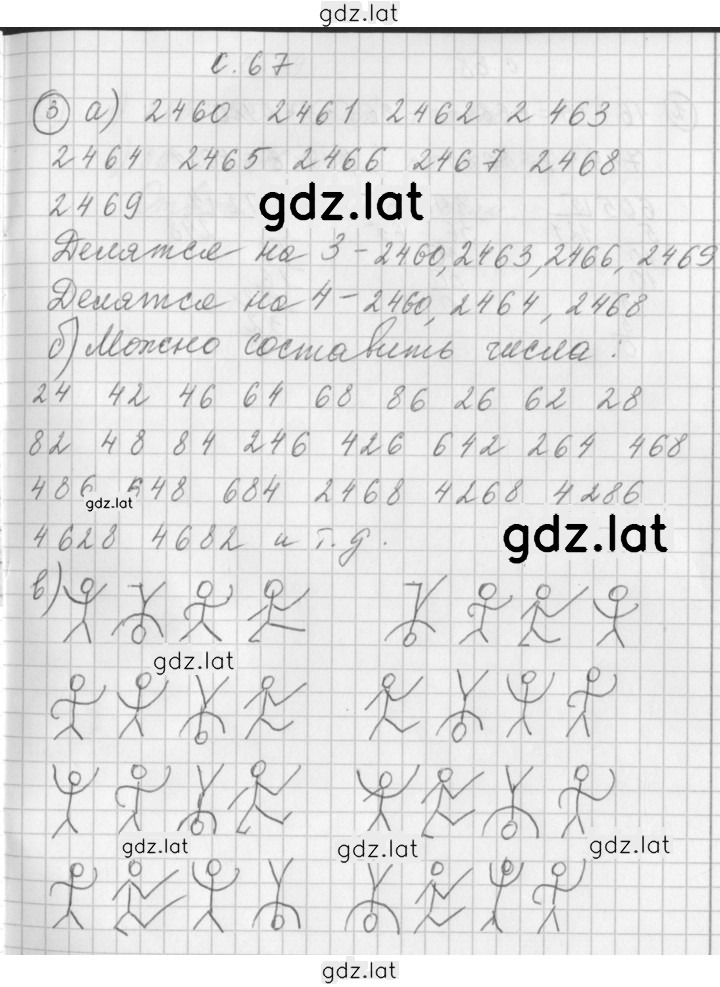 gdz.lat
с. 67
3 а) 2460 2461 2462 2463
2464 2465 2466 2467 2468
2469
gdz.lat
Делятся на 3 - 2460, 2463, 2466, 2469
Делятся на 4 - 2460, 2464, 2468
б) Можно составить числа:
24 42 46 64 68 86 26 62 28
82 48 84 246 426 642 264 468
486 648 684 2468 4268 4286
gdz.lat
4628 4682 и т.д.
gdz.lat
в)
gdz.lat
gdz.lat
gdz.lat
gdz.lat
gdz.lat